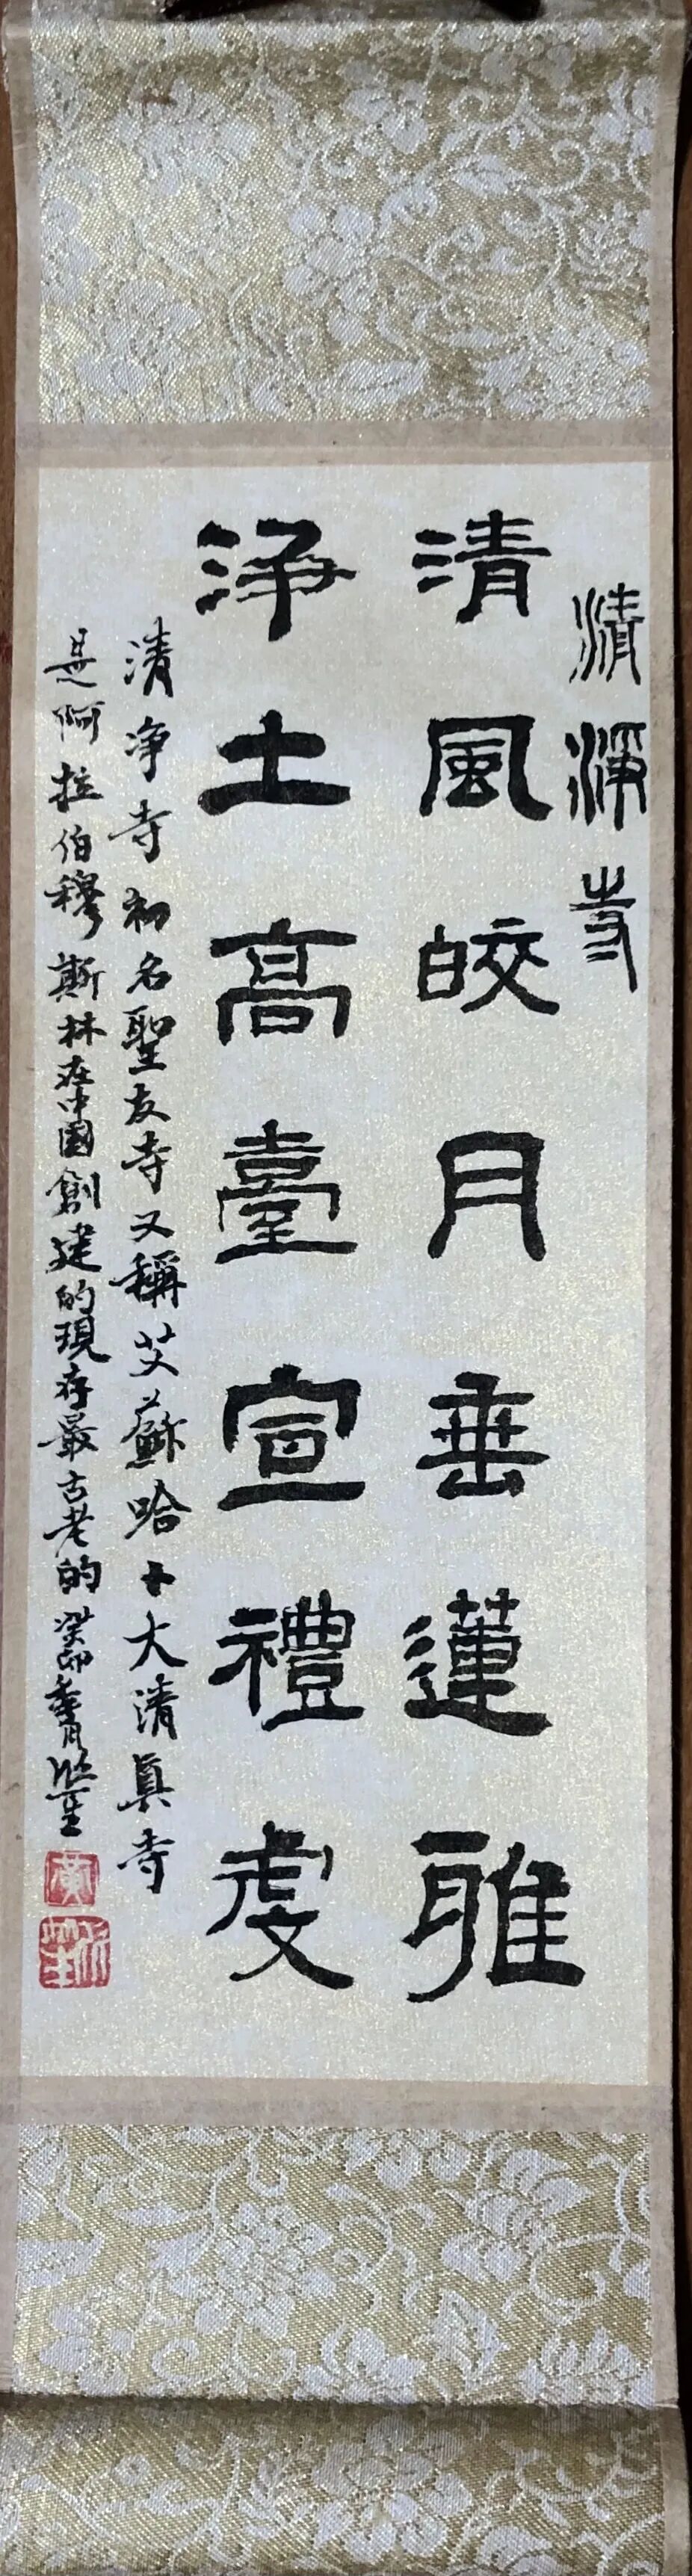 清淨寺
清風皎月垂蓮雅
淨土高臺宣禮處
清净寺初名聖友寺又稱艾蘇哈卜大清真寺
是阿拉伯穆斯林在中國創建的現存最古老的癸卯